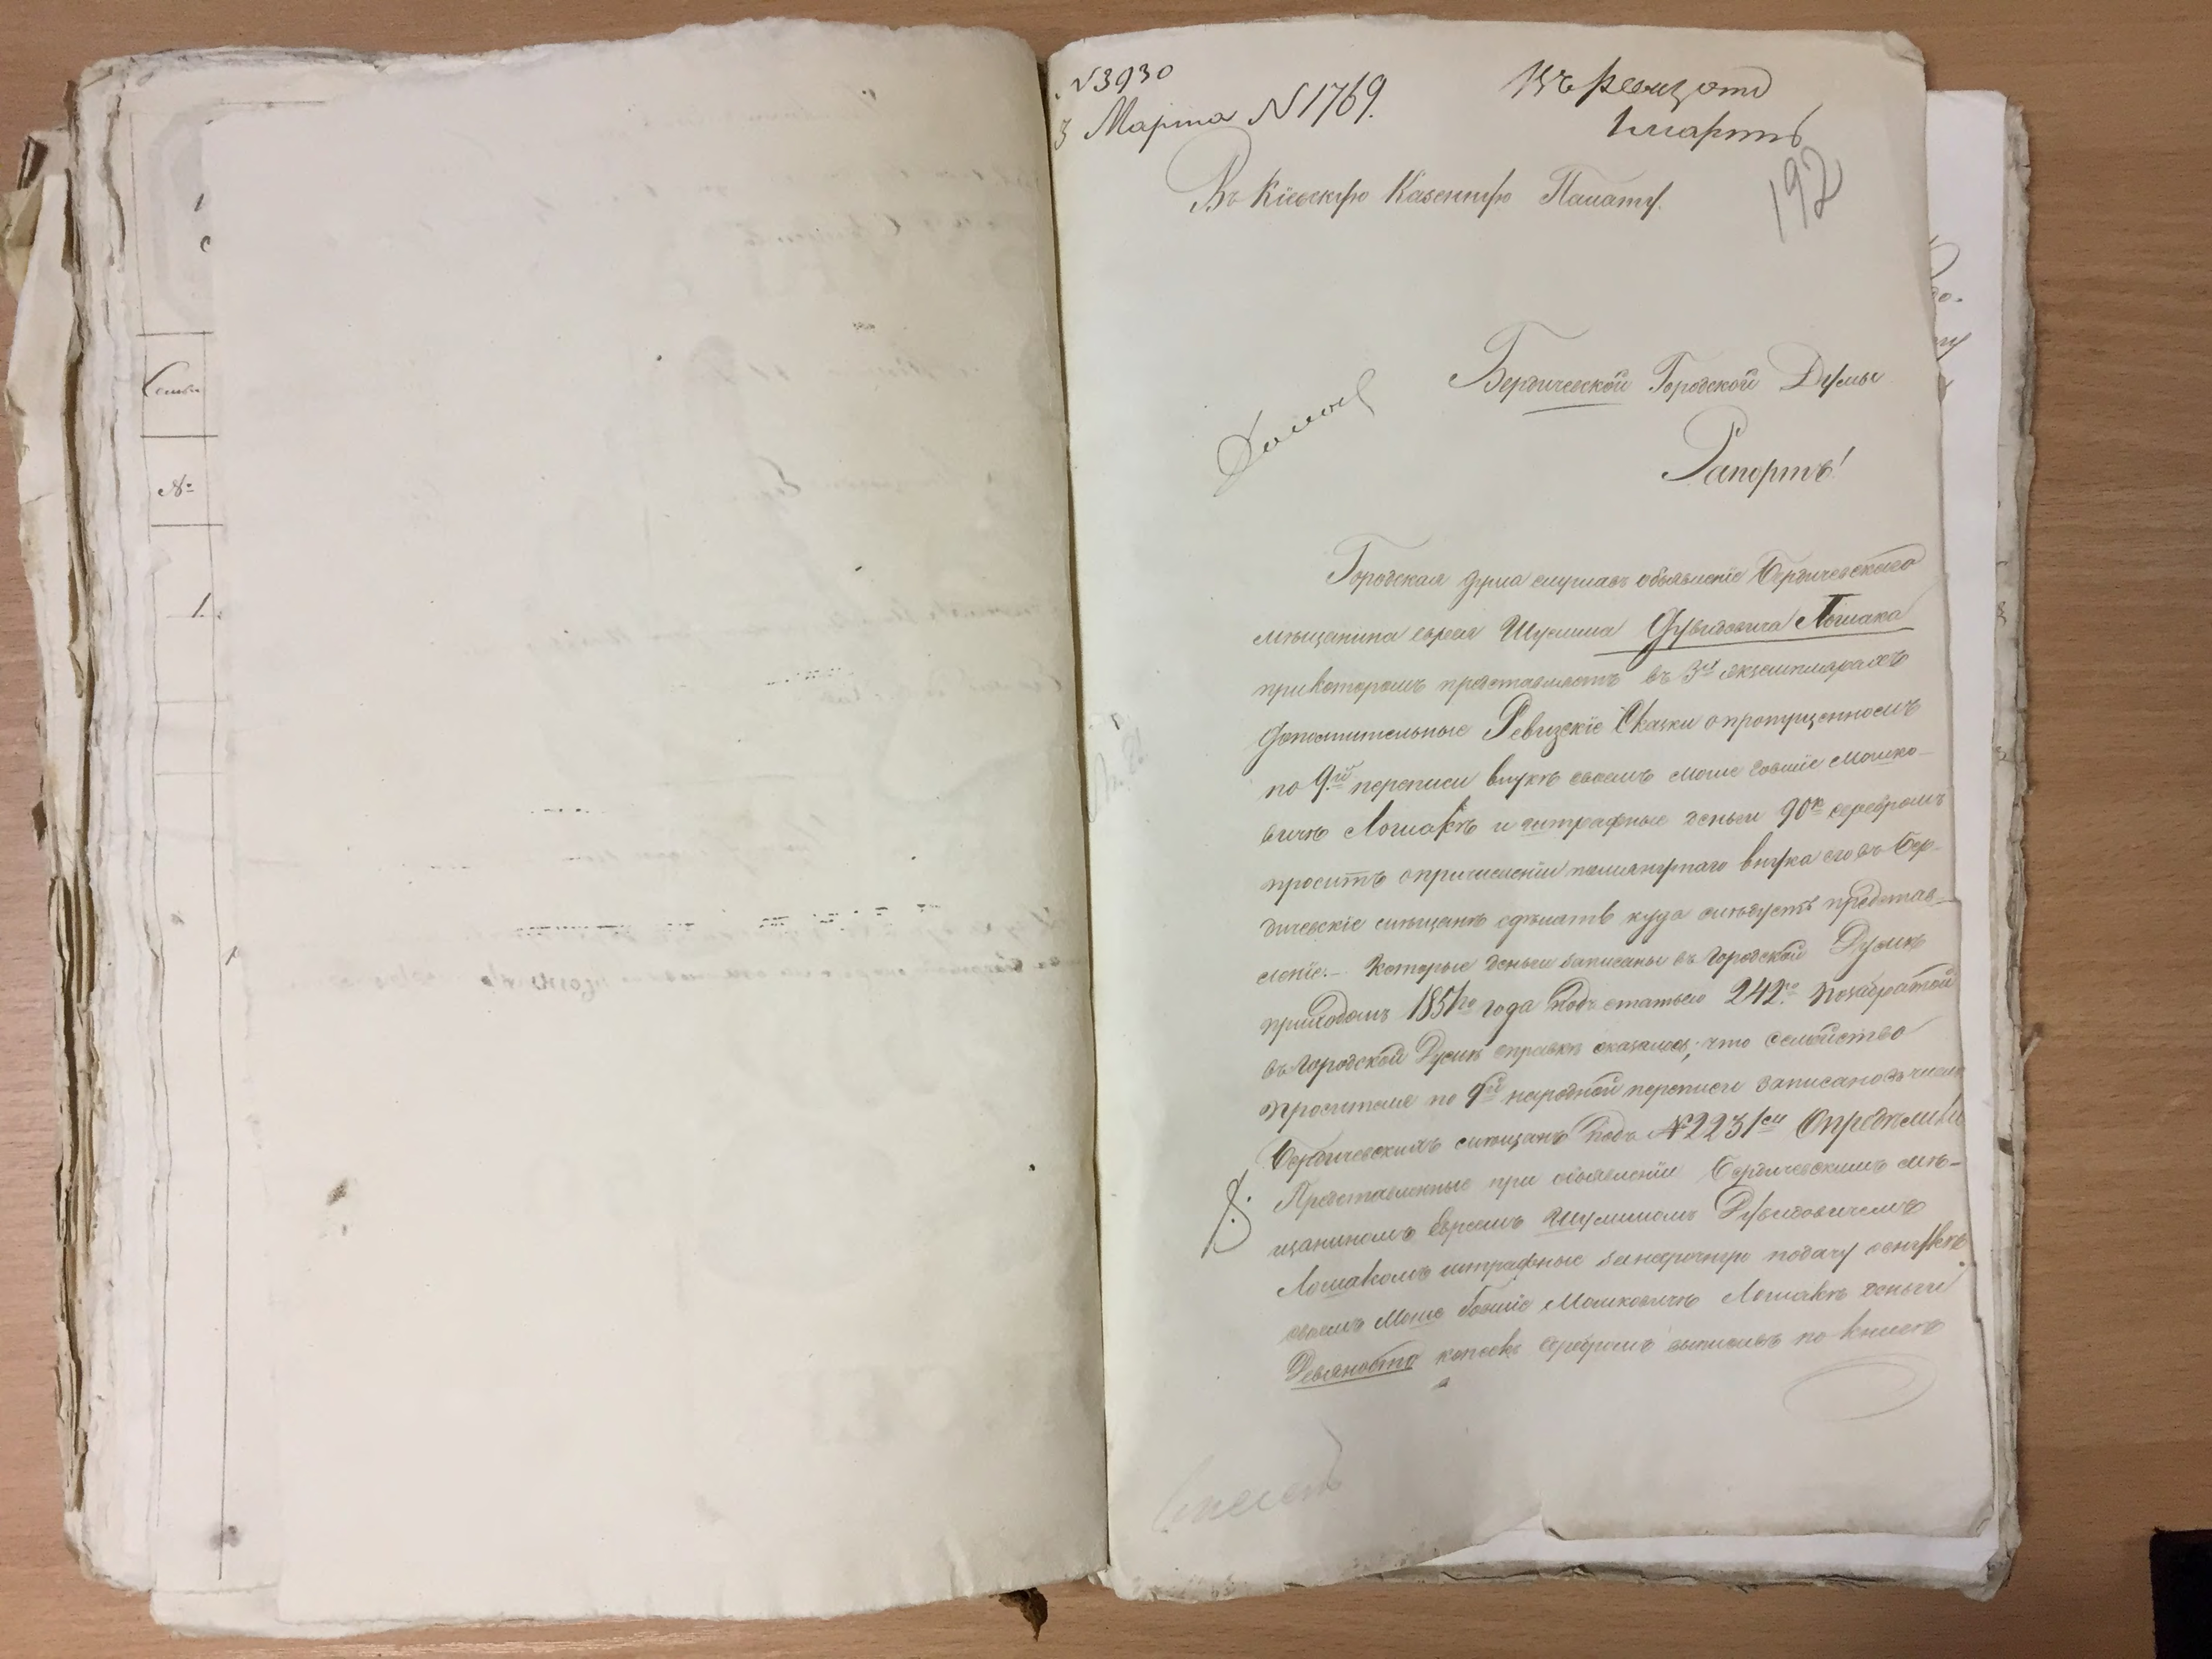 Семьи
№
1.
№ 3930
3 Марта № 1769.
192
Въ Кіевскую Казенную Палату.
Бердичевской Городской Думы
Рапортъ!
Городская Дума слушавъ объявленіе Бердичевского
мѣщанина еврея Шулима Дувидовича Лошака
при которомъ представляетъ въ 3хъ экземплярахъ
дополнительные Ревизскіе Сказки о пропущенномъ
по 9й переписи внукѣ своемъ Моше Мошко-
вичѣ Лошакѣ и штрафные деньги 90к серебромъ
проситъ о причисленіи помянутаго внука его въ Бер-
дичевскіе мѣщанѣ сдѣлать куда слѣдуетъ представ-
леніе. – Которые деньги записаны въ Городской Думѣ
приходомъ 1851го года подъ статьею 242ю. По забратой
въ Городской Думѣ справкѣ оказалось; что семейство
просителя по 9й народной переписи записано въ числѣ
Бердичевскихъ мѣщанъ подъ № 2231ем Опредѣлили
Представленные при объявленіи Бердичевскимъ мѣ-
щаниномъ Евреемъ Шулимомъ Дувидовичемъ
Лошакомъ штрафные за несрочную подачу о внукѣ
своемъ Моше Мошковичѣ Лошакѣ деньги
Девяносто копѣекъ серебромъ выписавъ по книгѣ